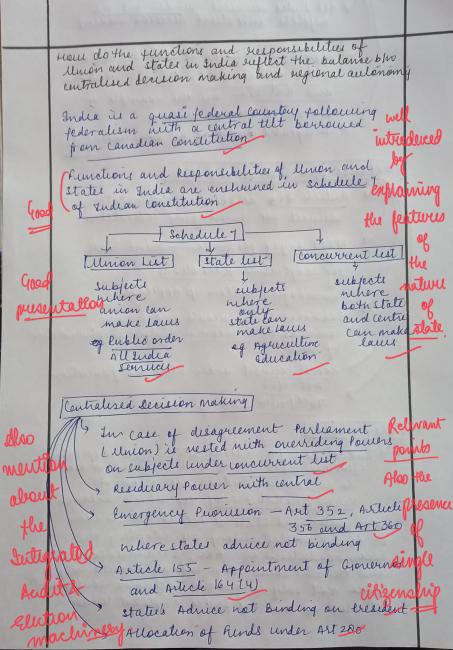 How do the functions and responsibilities of
Union and states in India reflect the balance b/w
centralised decision making and regional autonomy
India is a quasi federal Country following
federalism with a central tilt borrowed
from Canadian Constitution
well
introduced
by
explaining
the features
of
the
nature
of
state.
Functions and Responsibilities of Union and
states in India are enshrined in Schedule 7
of Indian Constitution
Good
Schedule 7
Union List
State list
Concurrent list
Good
presentation
subjects
where
union can
make laws
eg Public order
All India
Services
subjects
where
only
state can
make laws
eg Agriculture
education
subjects
where
both state
and centre
can make
laws
Centralised Decision Making
In case of disagreement Parliament
(Union) is vested with overriding Powers
on subjects under concurrent list
Residuary Power with central
Emergency Provision - Art 352, Article
356 and Art 360
where states advice not binding
Article 155 - Appointment of Governor
and Article 164(4)
State's Advice not Binding on President
Allocation of Funds under Art 280
Also
mention
about
the
Integrated
Audit &
Election
machinery
Relevant
points
Also the
presence
of
single
citizenship